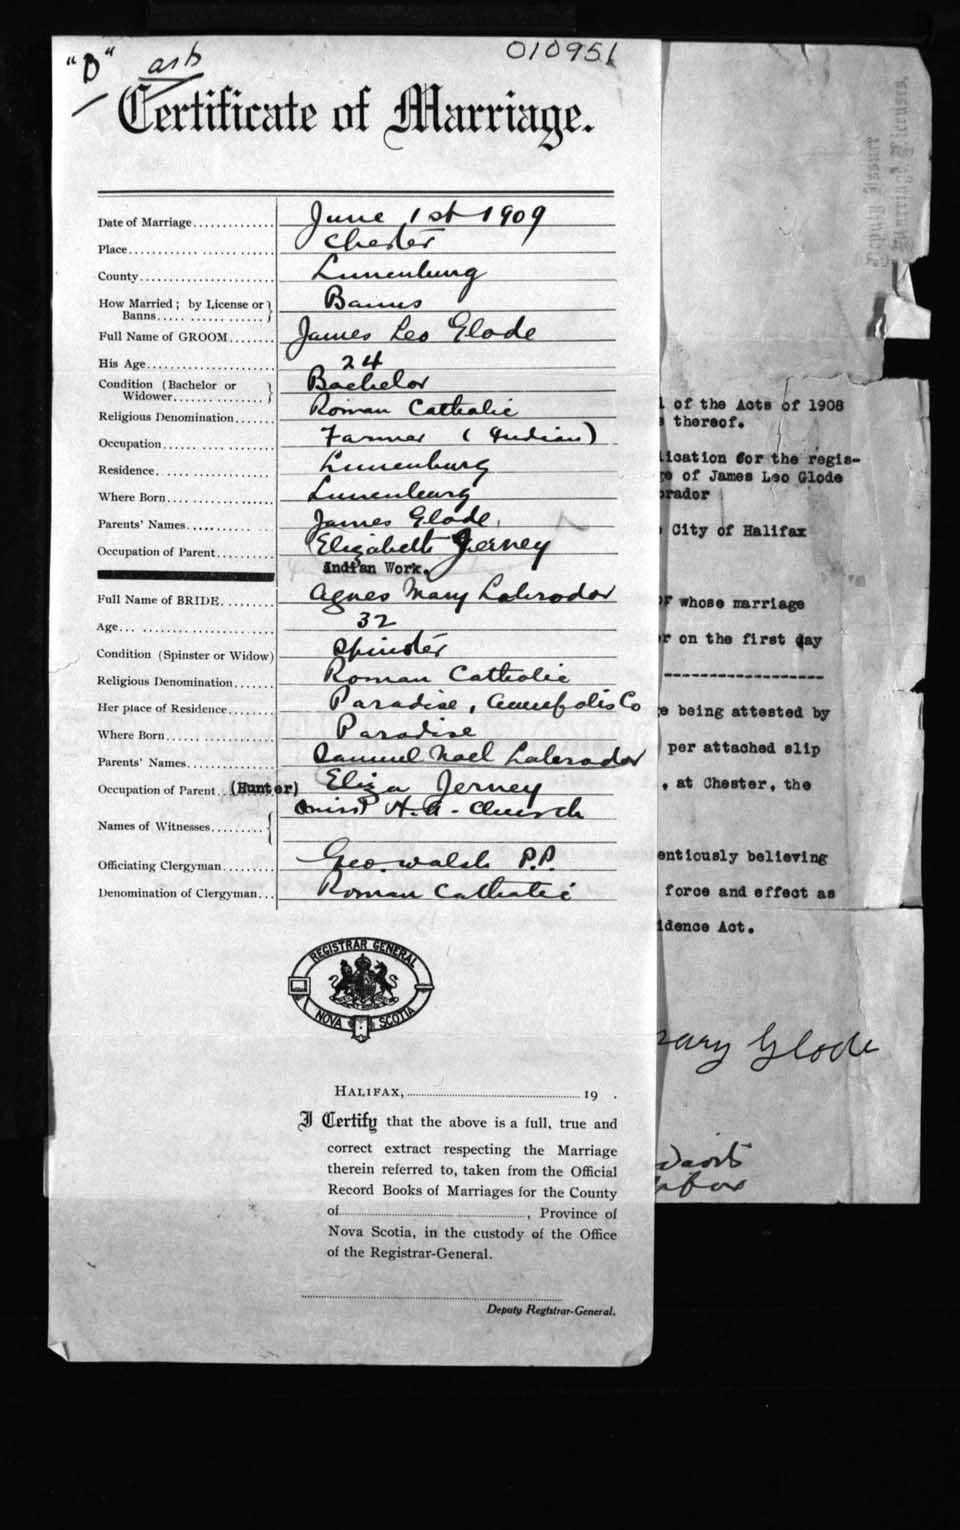 "D"
010951
Certificate of Marriage.
Date of Marriage.............. June 1st 1909
Place........... ................. Chester
County....................... Lunenburg
How Married ; by License or } Banns
Banns..... ........... ...... }
Full Name of GROOM........ James Leo Glode
His Age...................... 24
Condition (Bachelor or } Bachelor
Widower............... }
Religious Denomination....... Roman Catholic
Occupation...... ............ Farmer (Indian)
Residence..................... Lunenburg
Where Born.................. Lunenburg
Parents' Names.......... .... James Glode,
Occupation of Parent......... Elizabeth Jerney
Indian Work.
Full Name of BRIDE......... Agnes Mary Labrador
Age... ...................... 32
Condition (Spinster or Widow) Spinster
Religious Denomination....... Roman Catholic
Her place of Residence....... Paradise, Annapolis Co
Where Born.................. Paradise
Parents' Names............... Samuel Noel Labrador
Occupation of Parent... (Hunter) Eliza Jerney
Names of Witnesses......... { H. A. Church
Officiating Clergyman........ Geo. Walsh P.P.
Denomination of Clergyman... Roman Catholic
REGISTRAR GENERAL
NOVA SCOTIA
HALIFAX,.............................. 19 .
I Certify that the above is a full, true and
correct extract respecting the Marriage
therein referred to, taken from the Official
Record Books of Marriages for the County
of............................................., Province of
Nova Scotia, in the custody of the Office
of the Registrar-General.
Deputy Registrar-General.
Deputy Issuer
Marriage Licenses.
of the Acts of 1908
thereof.
lication for the regis-
of James Leo Glode
rador
City of Halifax
whose marriage
on the first day
------------------
being attested by
per attached slip
, at Chester, the
entiously believing
force and effect as
idence Act.
mary Glode